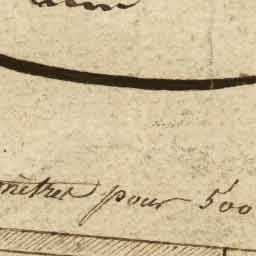 mètres pour 500